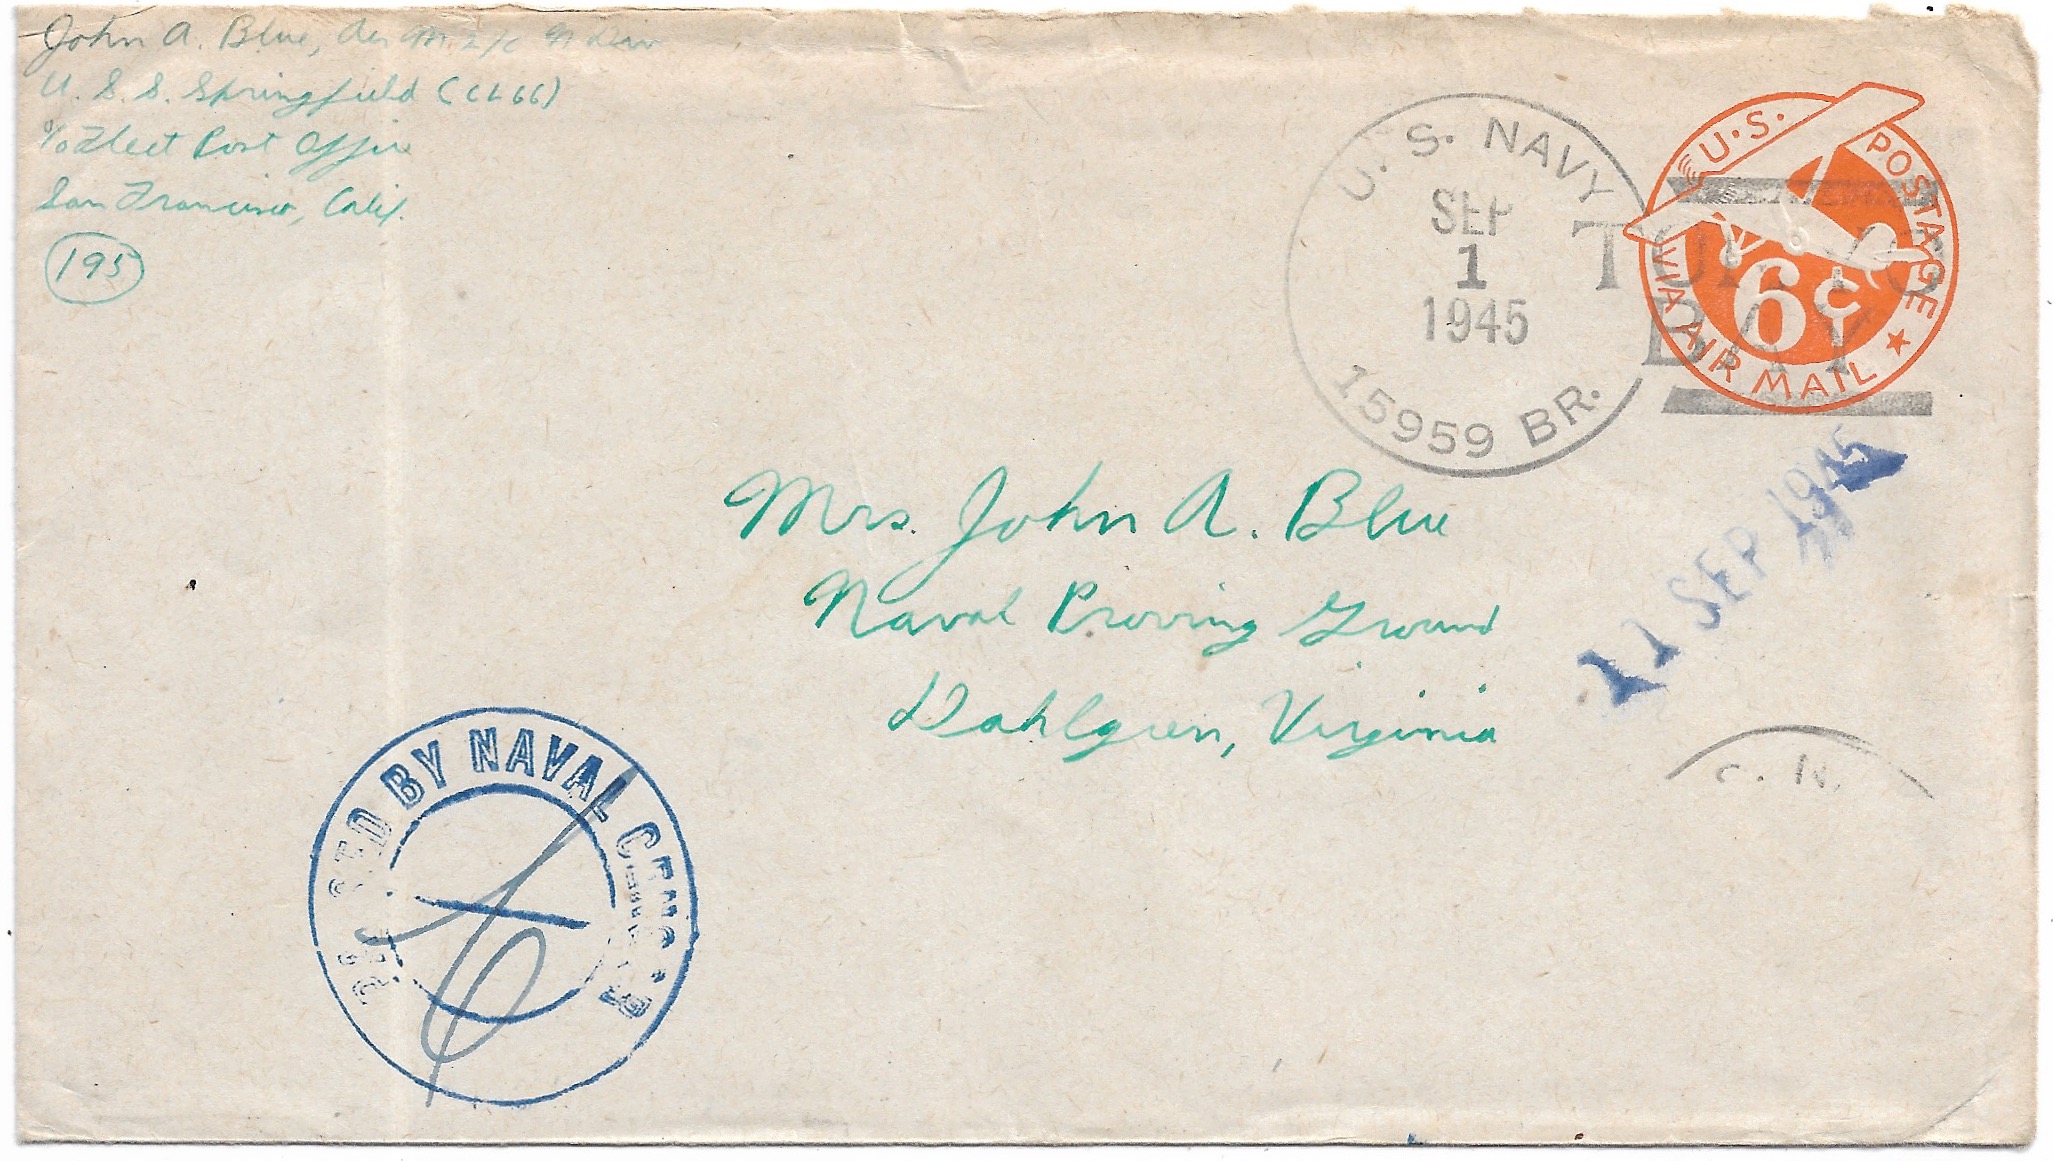 John A. Blue, Aer M 2/c N Div
U. S. S. Springfield (CL66)
℅ Fleet Post Office
San Francisco, Calif.
195
U. S. NAVY
SEP
1
1945
15959 BR.
TOKYO
BAY
U.S. POSTAGE
6¢
VIA AIR MAIL
Mrs. John A. Blue
Naval Proving Ground
Dahlgren, Virginia
11 SEP 1945
BY NAVAL